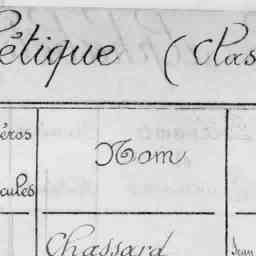 étique (Clas
éros
Nom
cules
Chassard
Jean